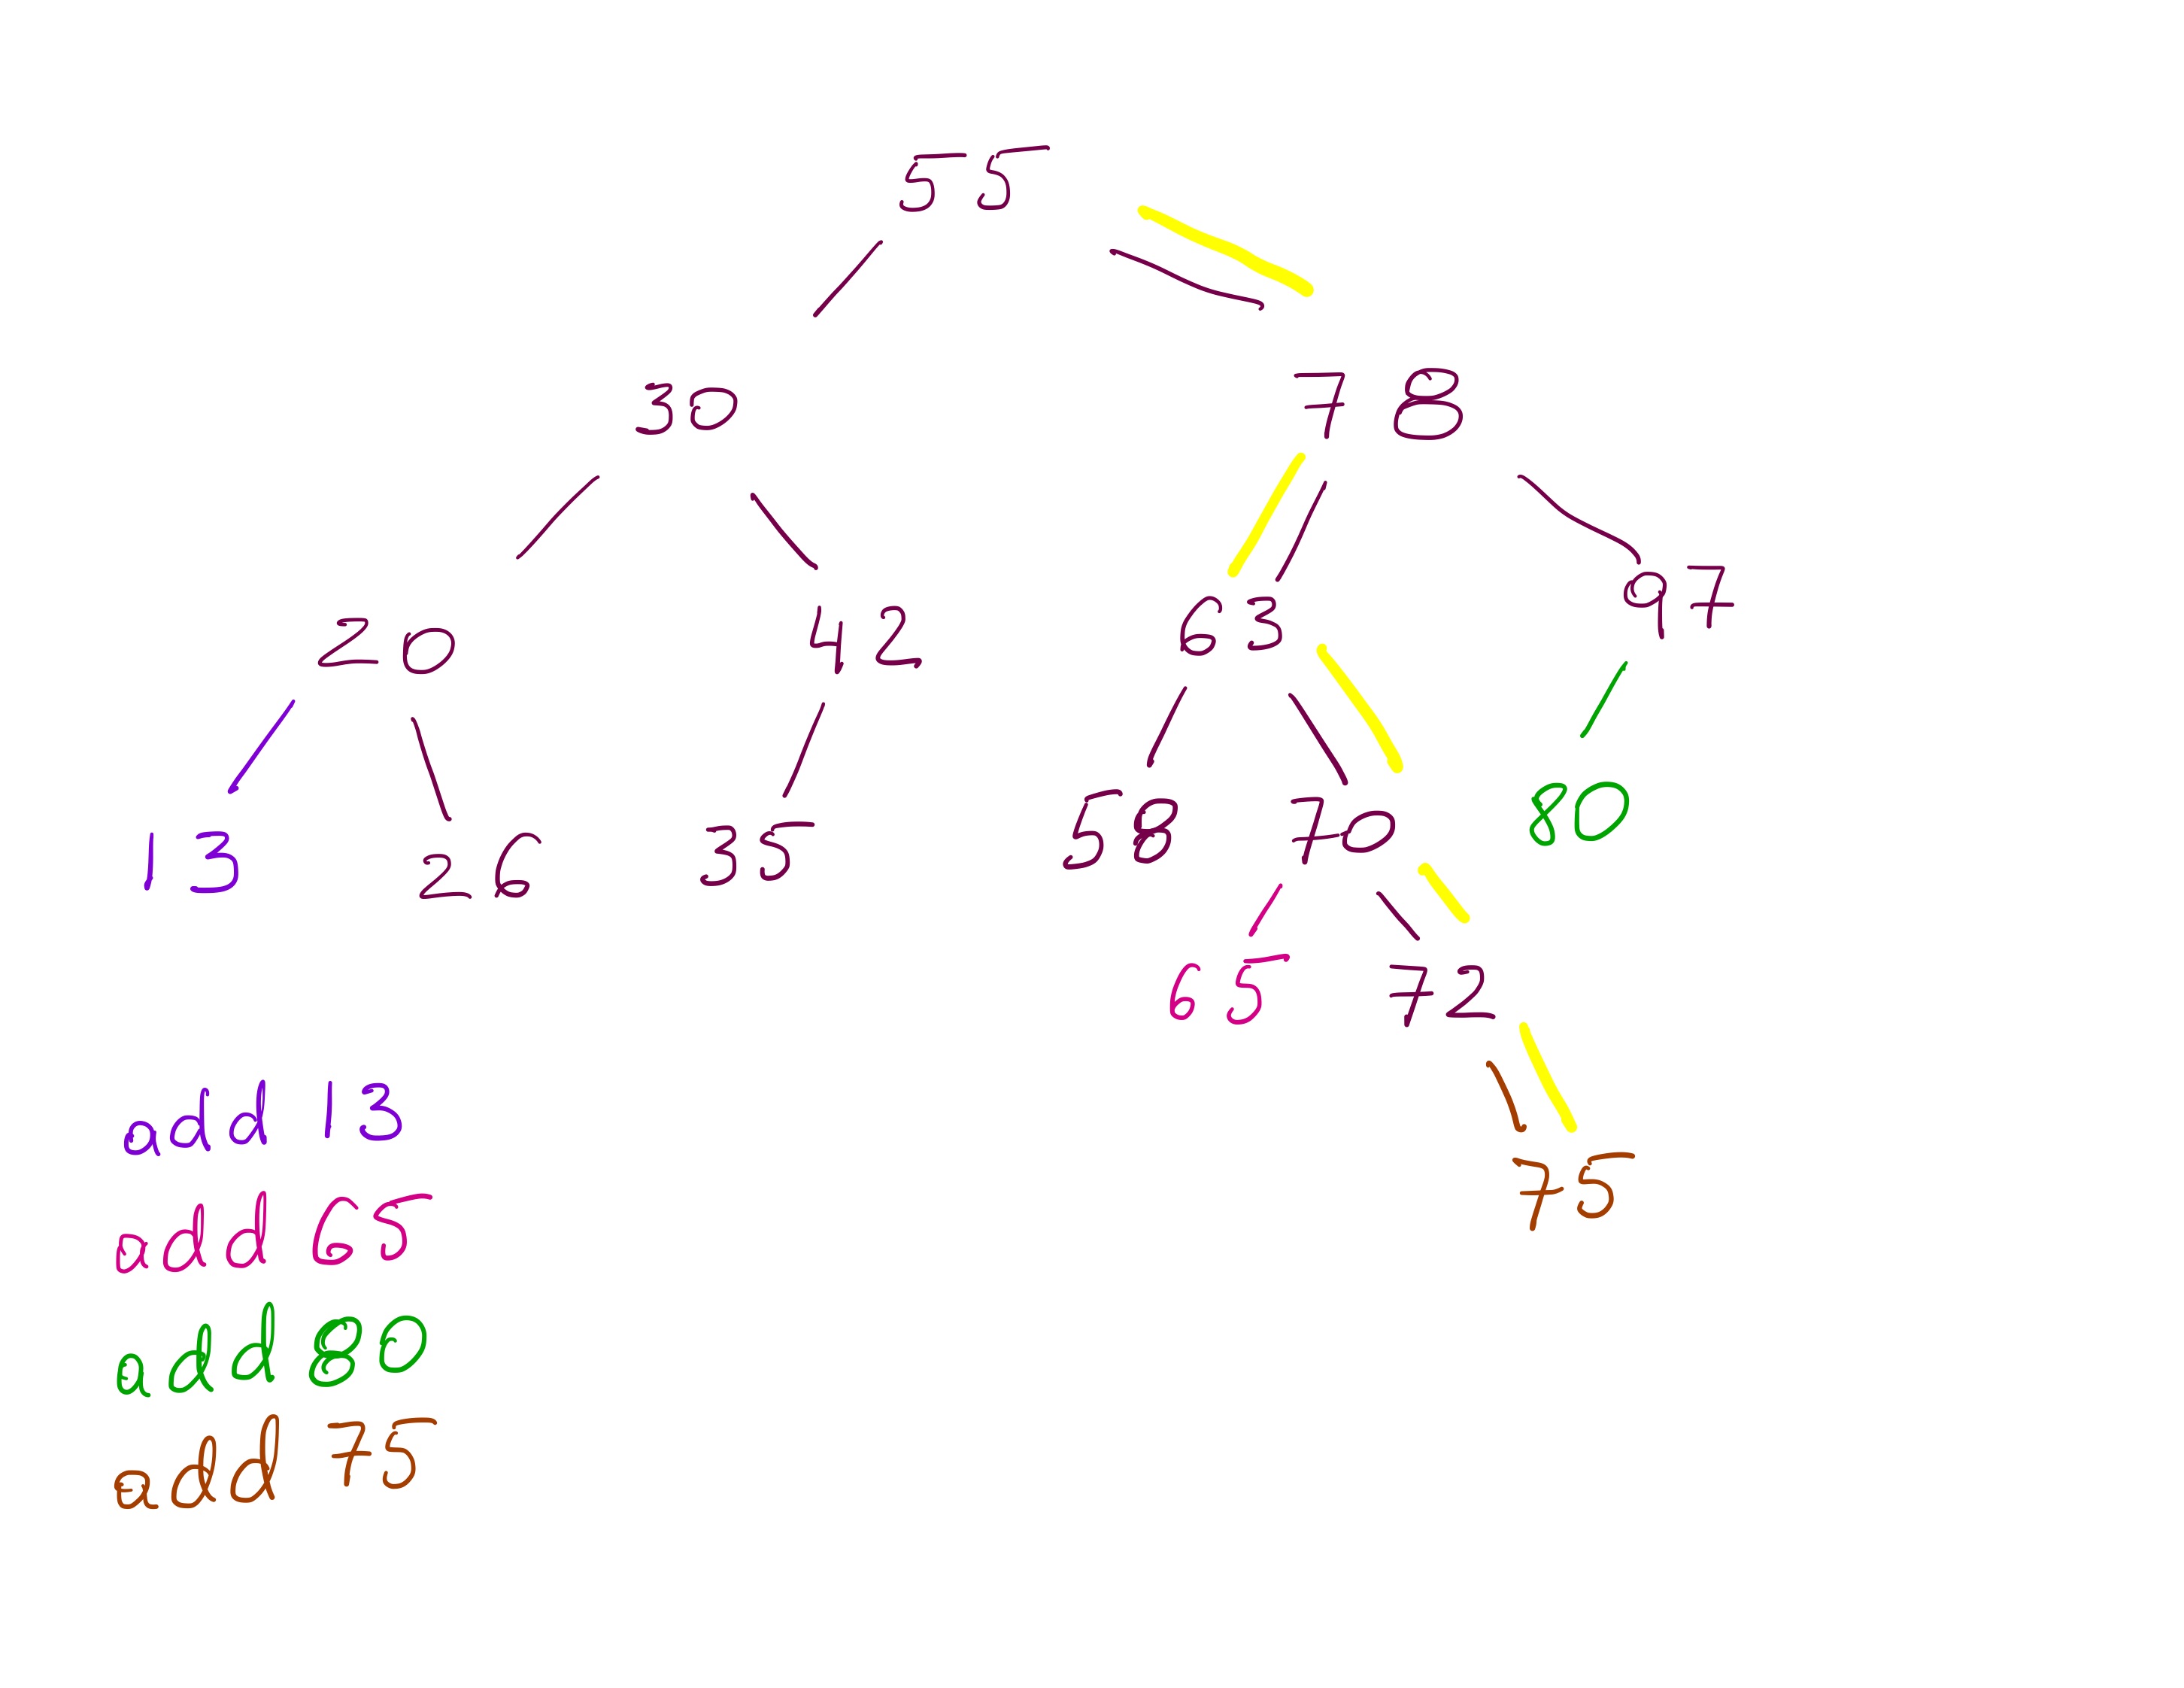 55
30 78
20 42 63 97
13 26 35 58 70 80
65 72
75
add 13
add 65
add 80
add 75